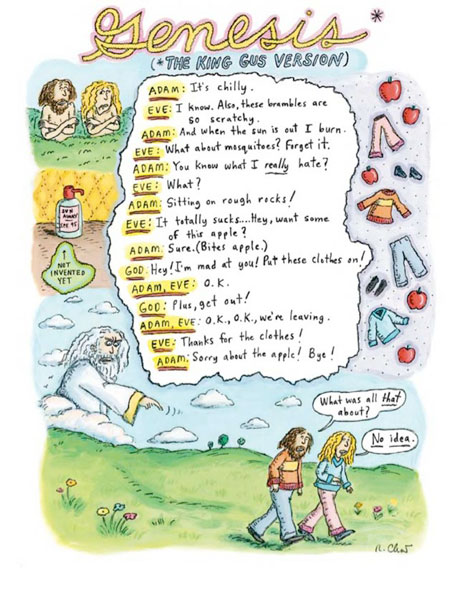 Genesis*
(*THE KING GUS VERSION)
ADAM: It's chilly.
EVE: I know. Also, these brambles are
so scratchy.
ADAM: And when the sun is out I burn.
EVE: What about mosquitoes? Forget it.
ADAM: You know what I really hate?
EVE: What?
ADAM: Sitting on rough rocks!
EVE: It totally sucks....Hey, want some
of this apple?
ADAM: Sure. (Bites apple.)
GOD: Hey! I'm mad at you! Put these clothes on!
ADAM, EVE: O.K.
GOD: Plus, get out!
ADAM, EVE: O.K., O.K., we're leaving.
EVE: Thanks for the clothes!
ADAM: Sorry about the apple! Bye!
SUN
AWAY
SPF 95
↑
NOT
INVENTED
YET
What was all that
about?
No idea.
R. Chast